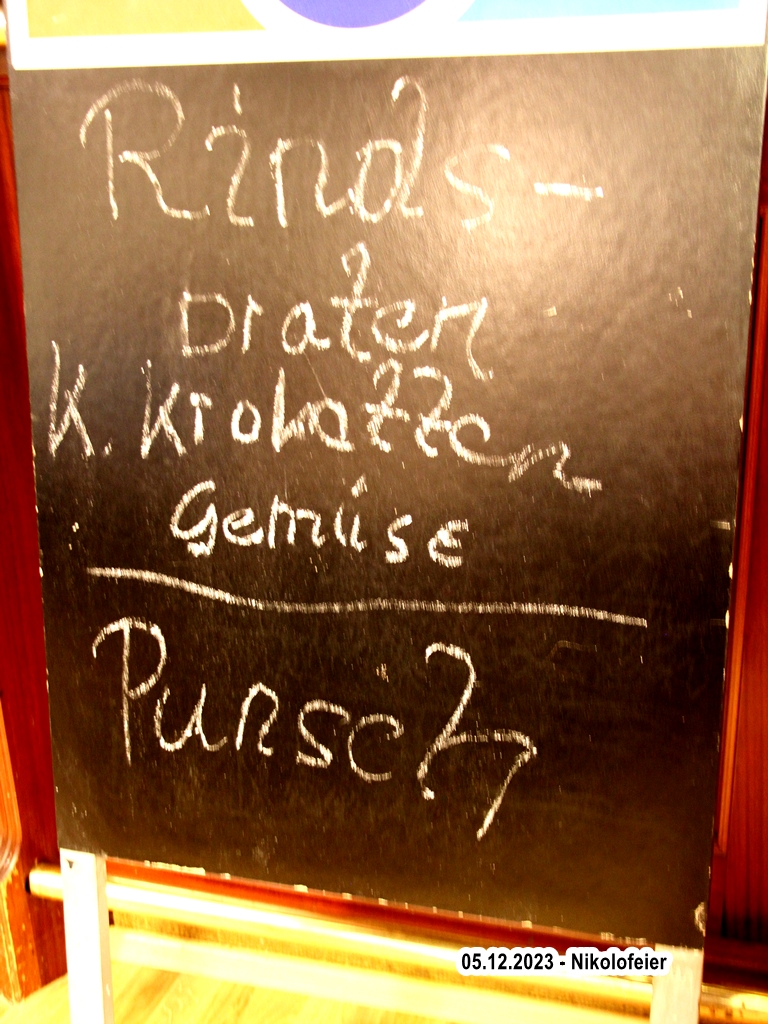 Rinds-
braten
K. Kroketten
Gemüse
Punsch
05.12.2023 - Nikolofeier